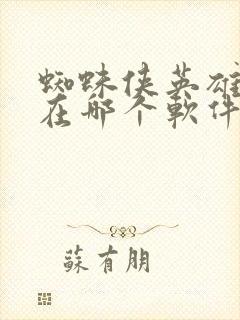 蜘蛛侠英雄
在那个軟件
蘇有朋